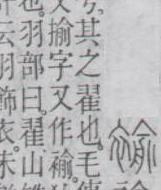 褕
兮其之翟也毛
揄字又作褕
也羽部曰翟山
云羽飾衣